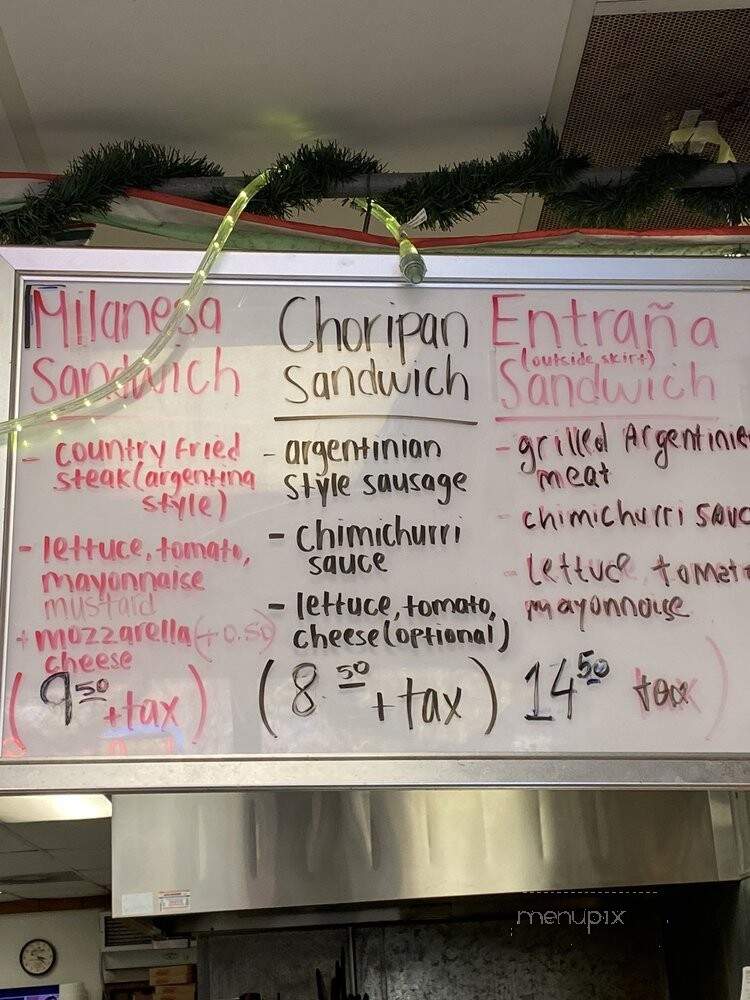 Milanesa
Sandwich
- country fried
steak (argentina
style)
- lettuce, tomato,
mayonnaise
mustard
+ mozzarella (+0.50)
cheese
(9.50 + tax)
Choripan
Sandwich
- argentinian
style sausage
- chimichurri
sauce
- lettuce, tomato,
cheese (optional)
(8.50 + tax)
Entraña
(outside skirt)
Sandwich
- grilled Argentinie
meat
- chimichurri sauc
- lettuce, tomat
mayonnoise
14.50 tax)
menupix